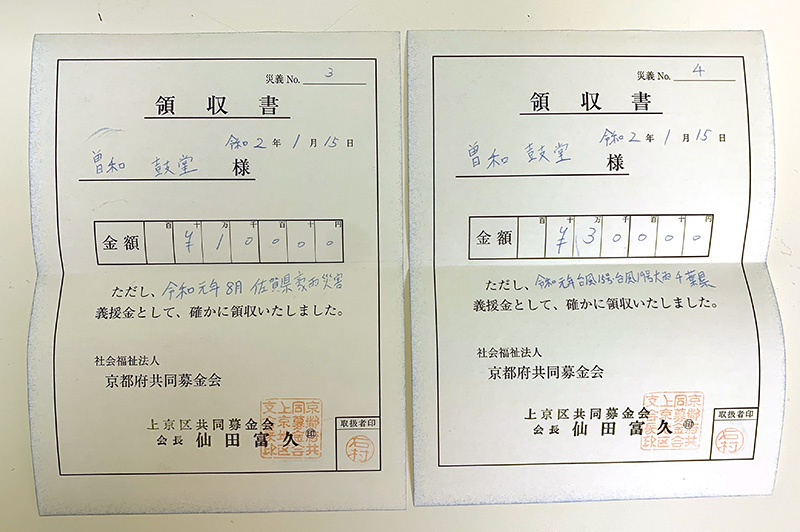 災義 No. 3
領収書
令和 2 年 1 月 15 日
曽和 鼓堂 様
金額 百 十 万 千 百 十 円
¥ 1 0 0 0 0
ただし、令和元年8月 佐賀県豪雨災害
義援金として、確かに領収いたしました。
社会福祉法人
京都府共同募金会
上京区共同募金会
会長 仙田富久 ㊞
取扱者印
災義 No. 4
領収書
令和 2 年 1 月 15 日
曽和 鼓堂 様
金額 百 十 万 千 百 十 円
¥ 3 0 0 0 0
ただし、令和元年台風15号台風19号大雨千葉県
義援金として、確かに領収いたしました。
社会福祉法人
京都府共同募金会
上京区共同募金会
会長 仙田富久 ㊞
取扱者印